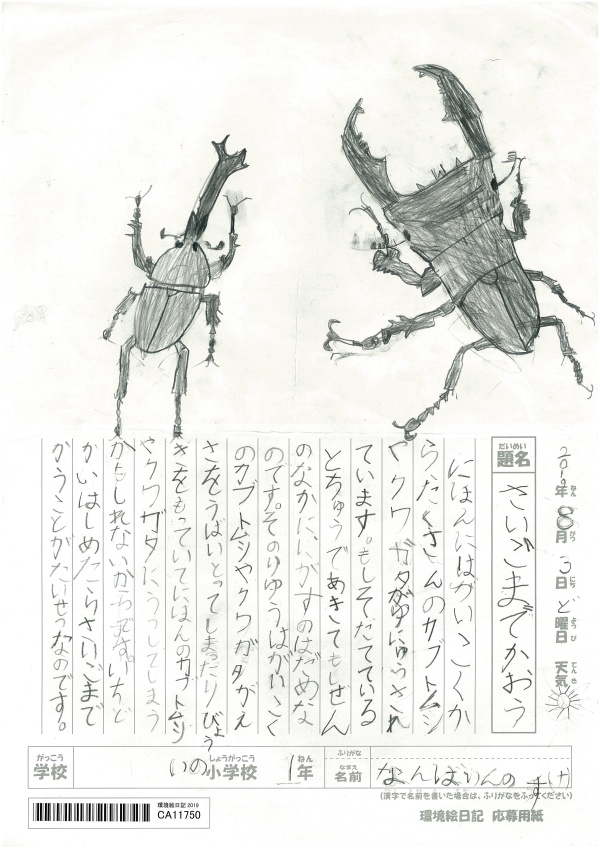 2019年ねん 8月がつ 3日にち ど曜日ようび 天気てんき
だいめい
題名
さいごまでかおう
にほんにはがいこくか
らたくさんのカブトムシ
やクワガタがゆにゅうされ
ています。もしそだてている
とちゅうであきてもしぜん
のなかに、にがすのはだめな
のです。そのりゆうはがいこく
のカブトムシやクワガタがえ
さをうばいとってしまったりびょう
きをもっていてにほんのカブトムシ
やクワガタにうつしてしまう
かもしれないからです。いちど
かいはじめたらさいごまで
かうことがたいせつなのです。
がっこう
学校
いの小学校しょうがっこう 1年ねん
ふりがな
なまえ
名前
なんぼりんのすけ
(漢字で名前を書いた場合は、ふりがなをふってください)
環境絵日記 2019
CA11750
環境絵日記 応募用紙